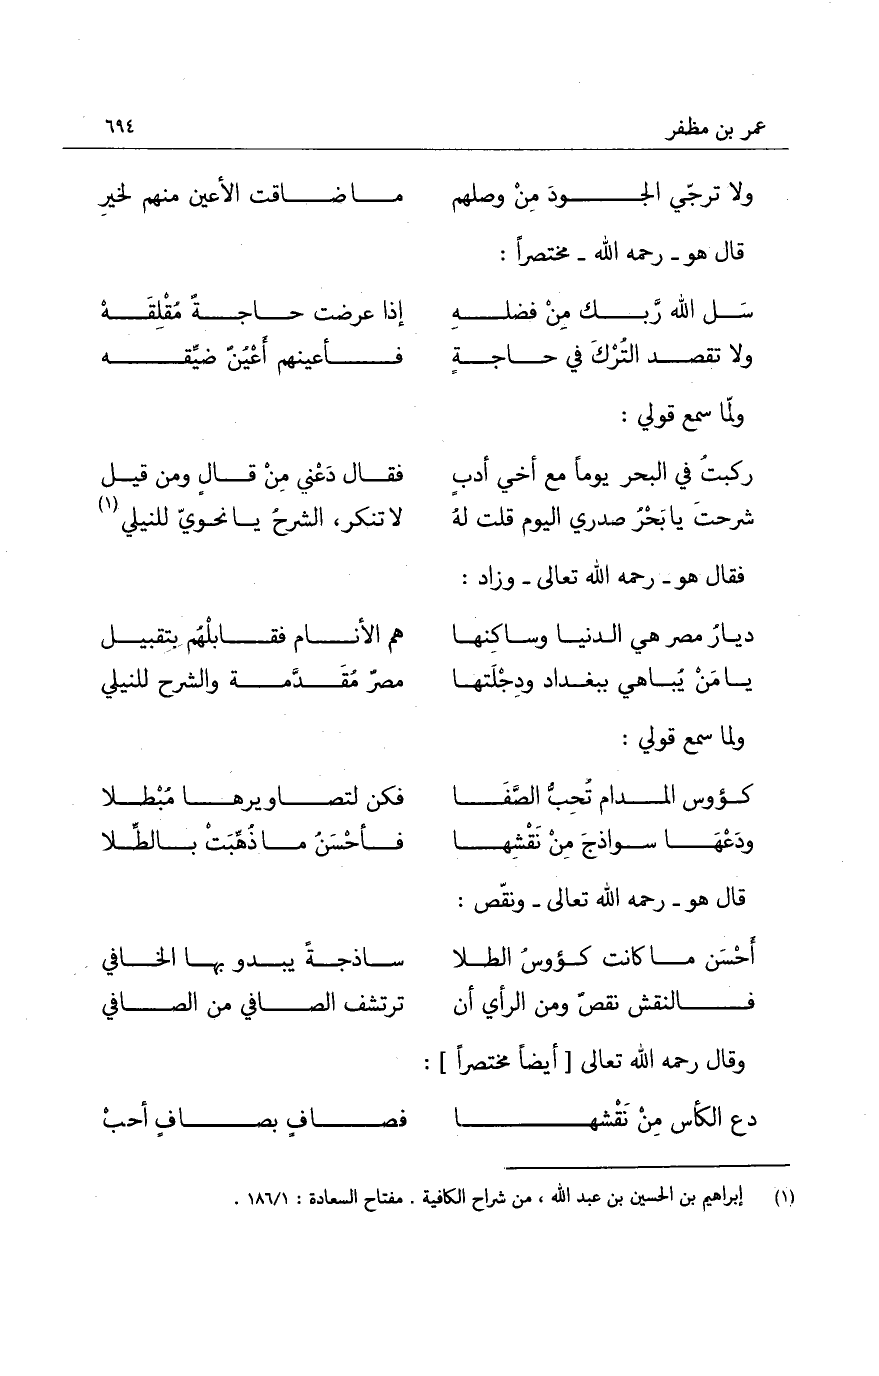 عمر بن مظفر ٦٩٤
ولا ترجّي الجـودَ مِنْ وصلهم ما ضاقت الأعين منهم لخيرِ
قال هو ـ رحمه الله ـ مختصراً :
سَل الله رَّبك مِنْ فضلهِ إذا عرضت حاجةٌ مُقْلِقَهْ
ولا تقصد التُرْكَ في حاجةٍ فأعينهم أَعْيُنٌ ضيِّقه
ولّما سمع قولي :
ركبتُ في البحر يوماً مع أخي أدبٍ فقال دَعْني مِنْ قالٍ ومن قيل
شرحتَ يا بَحْرُ صدري اليوم قلت لهُ لا تنكر، الشرحُ يا نحويّ للنيلي (١)
فقال هو ـ رحمه الله تعالى ـ وزاد :
ديارُ مصر هي الدنيا وساكِنها هم الأنام فقابلْهُم بتقبيل
يا مَنْ يُباهي ببغداد ودِجْلَتها مصرٌ مُقَدَّمة والشرح للنيلي
ولما سمع قولي :
كؤوس المدام تُحِبُّ الصَّفَا فكن لتصاويرها مُبْطلا
ودَعْهَا سواذجَ مِنْ نَقْشِها فأحْسَنُ ما ذُهِّبَتْ بالطِّلا
قال هو ـ رحمه الله تعالى ـ ونقّص :
أَحْسَن ما كانت كؤوسُ الطلا ساذجةً يبدو بها الخافي
فالنقش نقصٌ ومن الرأي أن ترتشف الصافي من الصافي
وقال رحمه الله تعالى [ أيضاً مختصراً ] :
دع الكأس مِنْ نَقْشها فصافٍ بصافٍ أحبْ
(١) إبراهيم بن الحسين بن عبد الله ، من شراح الكافية . مفتاح السعادة : ١٨٦/١ .